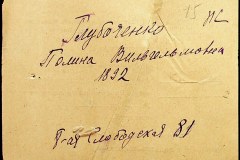 15 ПС
Глубоченко
Полина Вильгельмовна
1892
1-ая Слободская 81